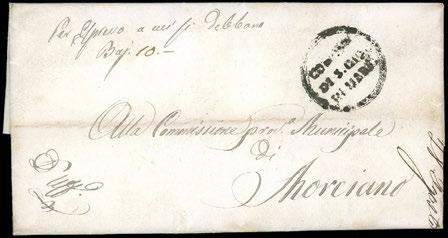 Per Espresso a cui si debbano
Baj. 10.—
COMUNE
DI S. GIO.
IN MARI
Alla Commissione prov.a Municipale
di
Morciano